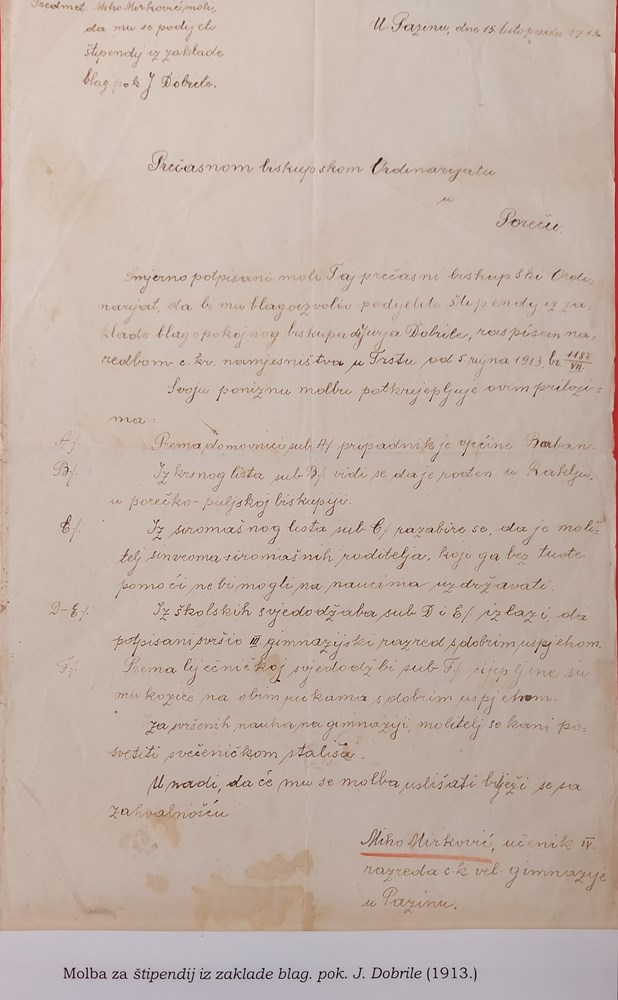 Predmet: Miho Mirković moli,
da mu se podijeli
štipendij iz zaklade
blag. pok. J. Dobrile.
U Pazinu, dne 15. listopada 1913.
Prečasnom biskupskom Ordinarijatu
u
Poreču.
Smjerno potpisani moli Taj prečasni biskupski Ordi-
narijat, da bi mu blagoizvolio podijeliti štipendij iz za-
klade blagopokojnog biskupa Jurja Dobrile, raspisan na-
redbom c. kr. namjesništva u Trstu od 5 rujna 1913. br. 1187/VII.
Svoju poniznu molbu potkrijepljuje ovim prilozi-
ma:
A/. Prema domovnici sub A/. pripadnik je općine Barban.
B/. Iz krsnog lista sub B/. vidi se da je rođen u Raklju,
u porečko-puljskoj biskupiji.
C/. Iz siromašnog lista sub C/. razabire se, da je moli-
telj sin veoma siromašnih roditelja, koji ga bez tuđe
pomoći ne bi mogli na naucima uzdržavati.
D-E/. Iz školskih svjedodžaba sub D i E/. izlazi, da
potpisani svršio III. gimnazijski razred s dobrim uspjehom.
F/. Prema liječničkoj svjedodžbi sub F/. cijepljene su
mu kozice na obim rukama s dobrim uspjehom.
Za svršenih nauka na gimnaziji, molitelj se kani po-
svetiti svećeničkom stališu.
U nadi, da će mu se molba uslišati bilježi se sa
zahvalnošću
Miho Mirković, učenik IV.
razreda c. k. vel. gimnazije
u Pazinu.
Molba za štipendij iz zaklade blag. pok. J. Dobrile (1913.)